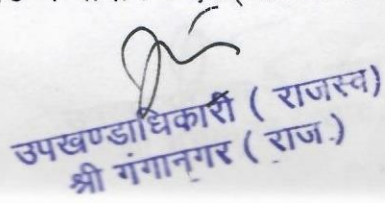 उपखण्डाधिकारी ( राजस्व )
श्री गंगानगर ( राज .)